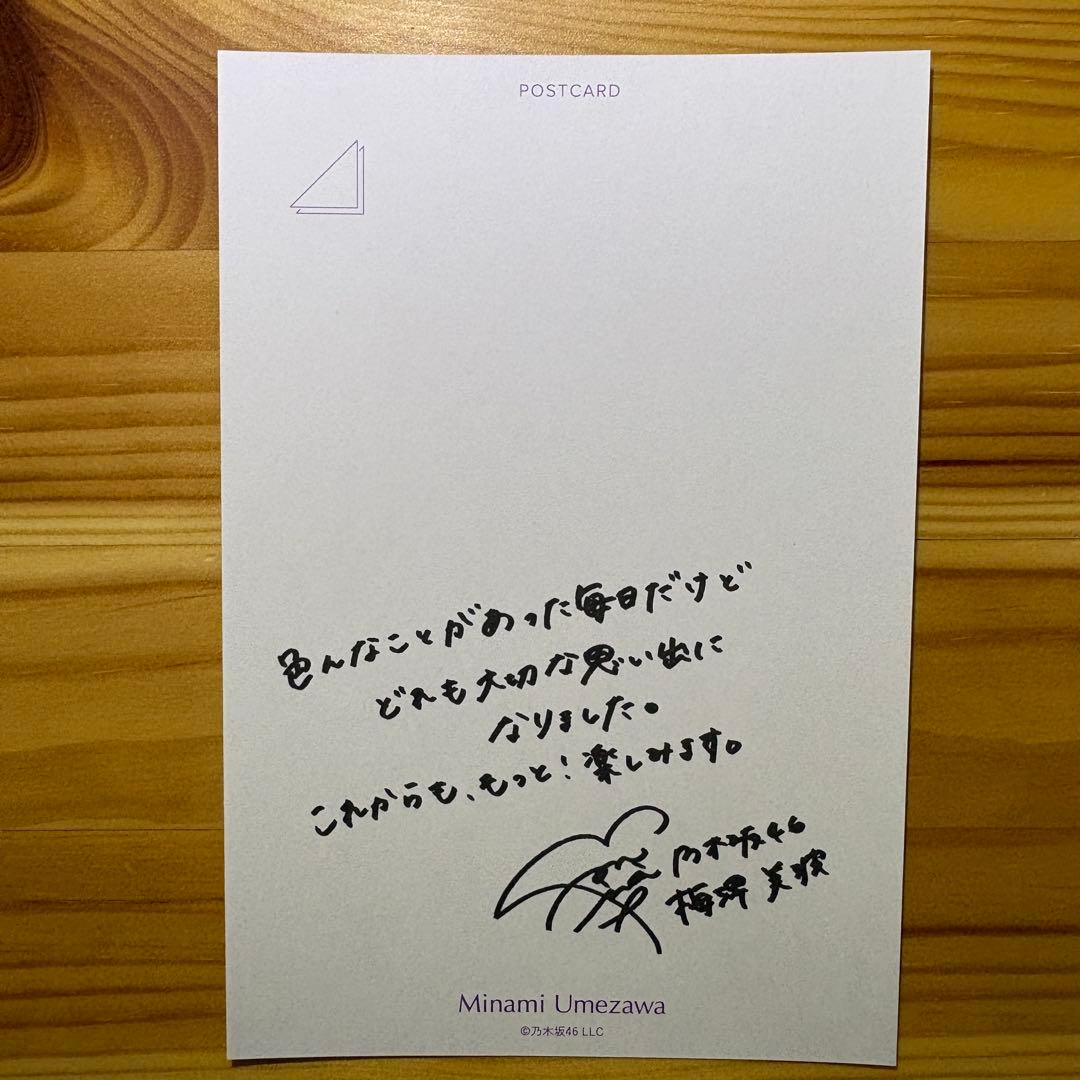 POSTCARD
色んなことがあった毎日だけど
どれも大切な思い出に
なりました。
これからも、もっと!楽しみます。
乃木坂46
梅澤 美波
Minami Umezawa
©乃木坂46 LLC